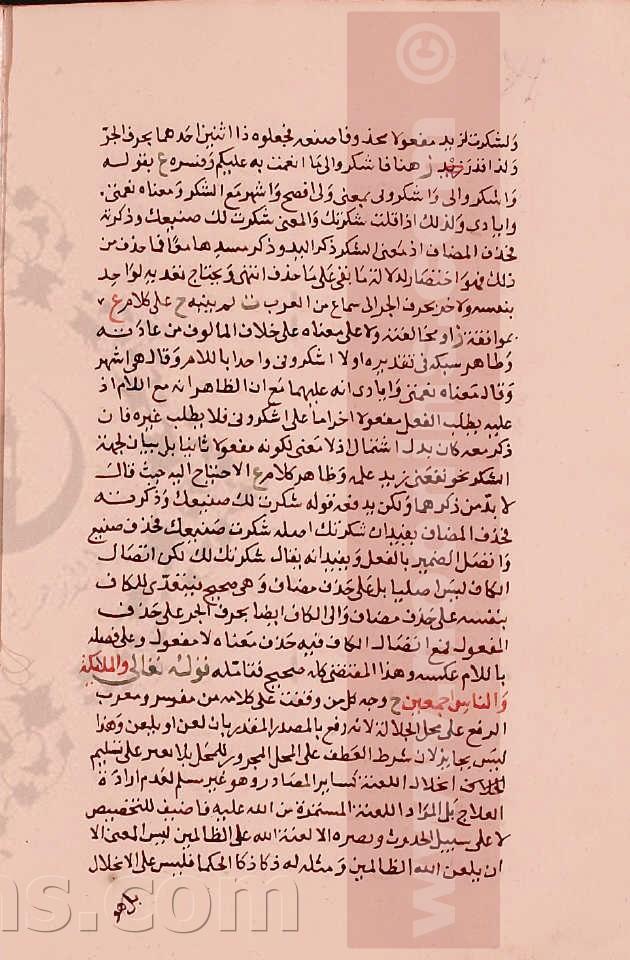 ولشكرت لزيد مفعولا محذوفا صنعه فجعلوه ذا اثنين احدهما بحرف الجر
ولذا قدر هنا فاشكروا لي ما انعمت به عليكم وفسره ع بقوله
واشكروا لي واشكروني بمعنى ولي افصح واشهر مع الشكر ومعناه نعمتي
وايادي ولذلك اذا قلت شكرتك والمعنى شكرت لك صنيعك وذكرته
فحذف المضاف اذ معنى الشكر ذكر اليد وذكر مسديها معا فما حذف من
ذلك فهو اختصار لدلالة ما بقي على ما حذف انتهى ويحتاج تعديه لواحد
بنفسه ولاخر بحرف الجر الى سماع من العرب لم ينبه ح على كلام ع
بموافقة او مخالفته ولا على معناه على خلاف المالوف من عادته
وظاهر سبكه في تقديره اولا اشكروني واحدا باللام وقال هي اشهر
وقال معناه نعمتي وايادي انه عليهما مع ان الظاهر انه مع اللام اذ
عليه يطلب الفعل مفعولا اخر اما على اشكروني فلا يطلب غيره فان
ذكر معه كان بدل اشتمال اذ لا معنى لكونه مفعولا ثانيا بل بيان لجهة
الشكر نحو نفعني زيد علمه وظاهر كلام ع الاحتياج اليه حيث قال
لا بد من ذكرهما ولكن يدفعه قوله شكرت لك صنيعك وذكرته
فحذف المضاف يفيد ان شكرتك اصله شكرت صنيعك فحذف صنيع
واتصل الضمير بالفعل ويفيد انه يقال شكرتك لك لكن اتصال
الكاف ليس اصليا بل على حذف مضاف وهي صحيح فيتعدى للكاف
بنفسه على حذف مضاف والى الكاف ايضا بحرف الجر على حذف
المفعول فمع اتصال الكاف فيه حذف معناه لا مفعول وعلى فصله
باللام عكسه وهذا المقتضي كله صحيح فتامله قوله تعالى والملائكة
والناس اجمعين ح وجه كل من وقفت على كلامه من مفسر ومعرب
الرفع على محل الجلالة لانه رفع بالمصدر المقدر بان لعن او يلعن وهذا
ليس بجايز لان شرط العطف على المحل المجرور للمحل على تسليم
انحلال اللعنة كساير المصادر وهو غير مسلم لعدم ارادة
العلاج بل المراد اللعنة المستمرة من الله عليه فاضيف للتخصيص
لا على سبيل الحدوث ونصره الا لعنة الله على الظالمين ليس المعنى الا
ان يلعن الله الظالمين ومثله له ذكا ذكا الحكما فليس على الانحلال
بل هو
ns.com
©
www.